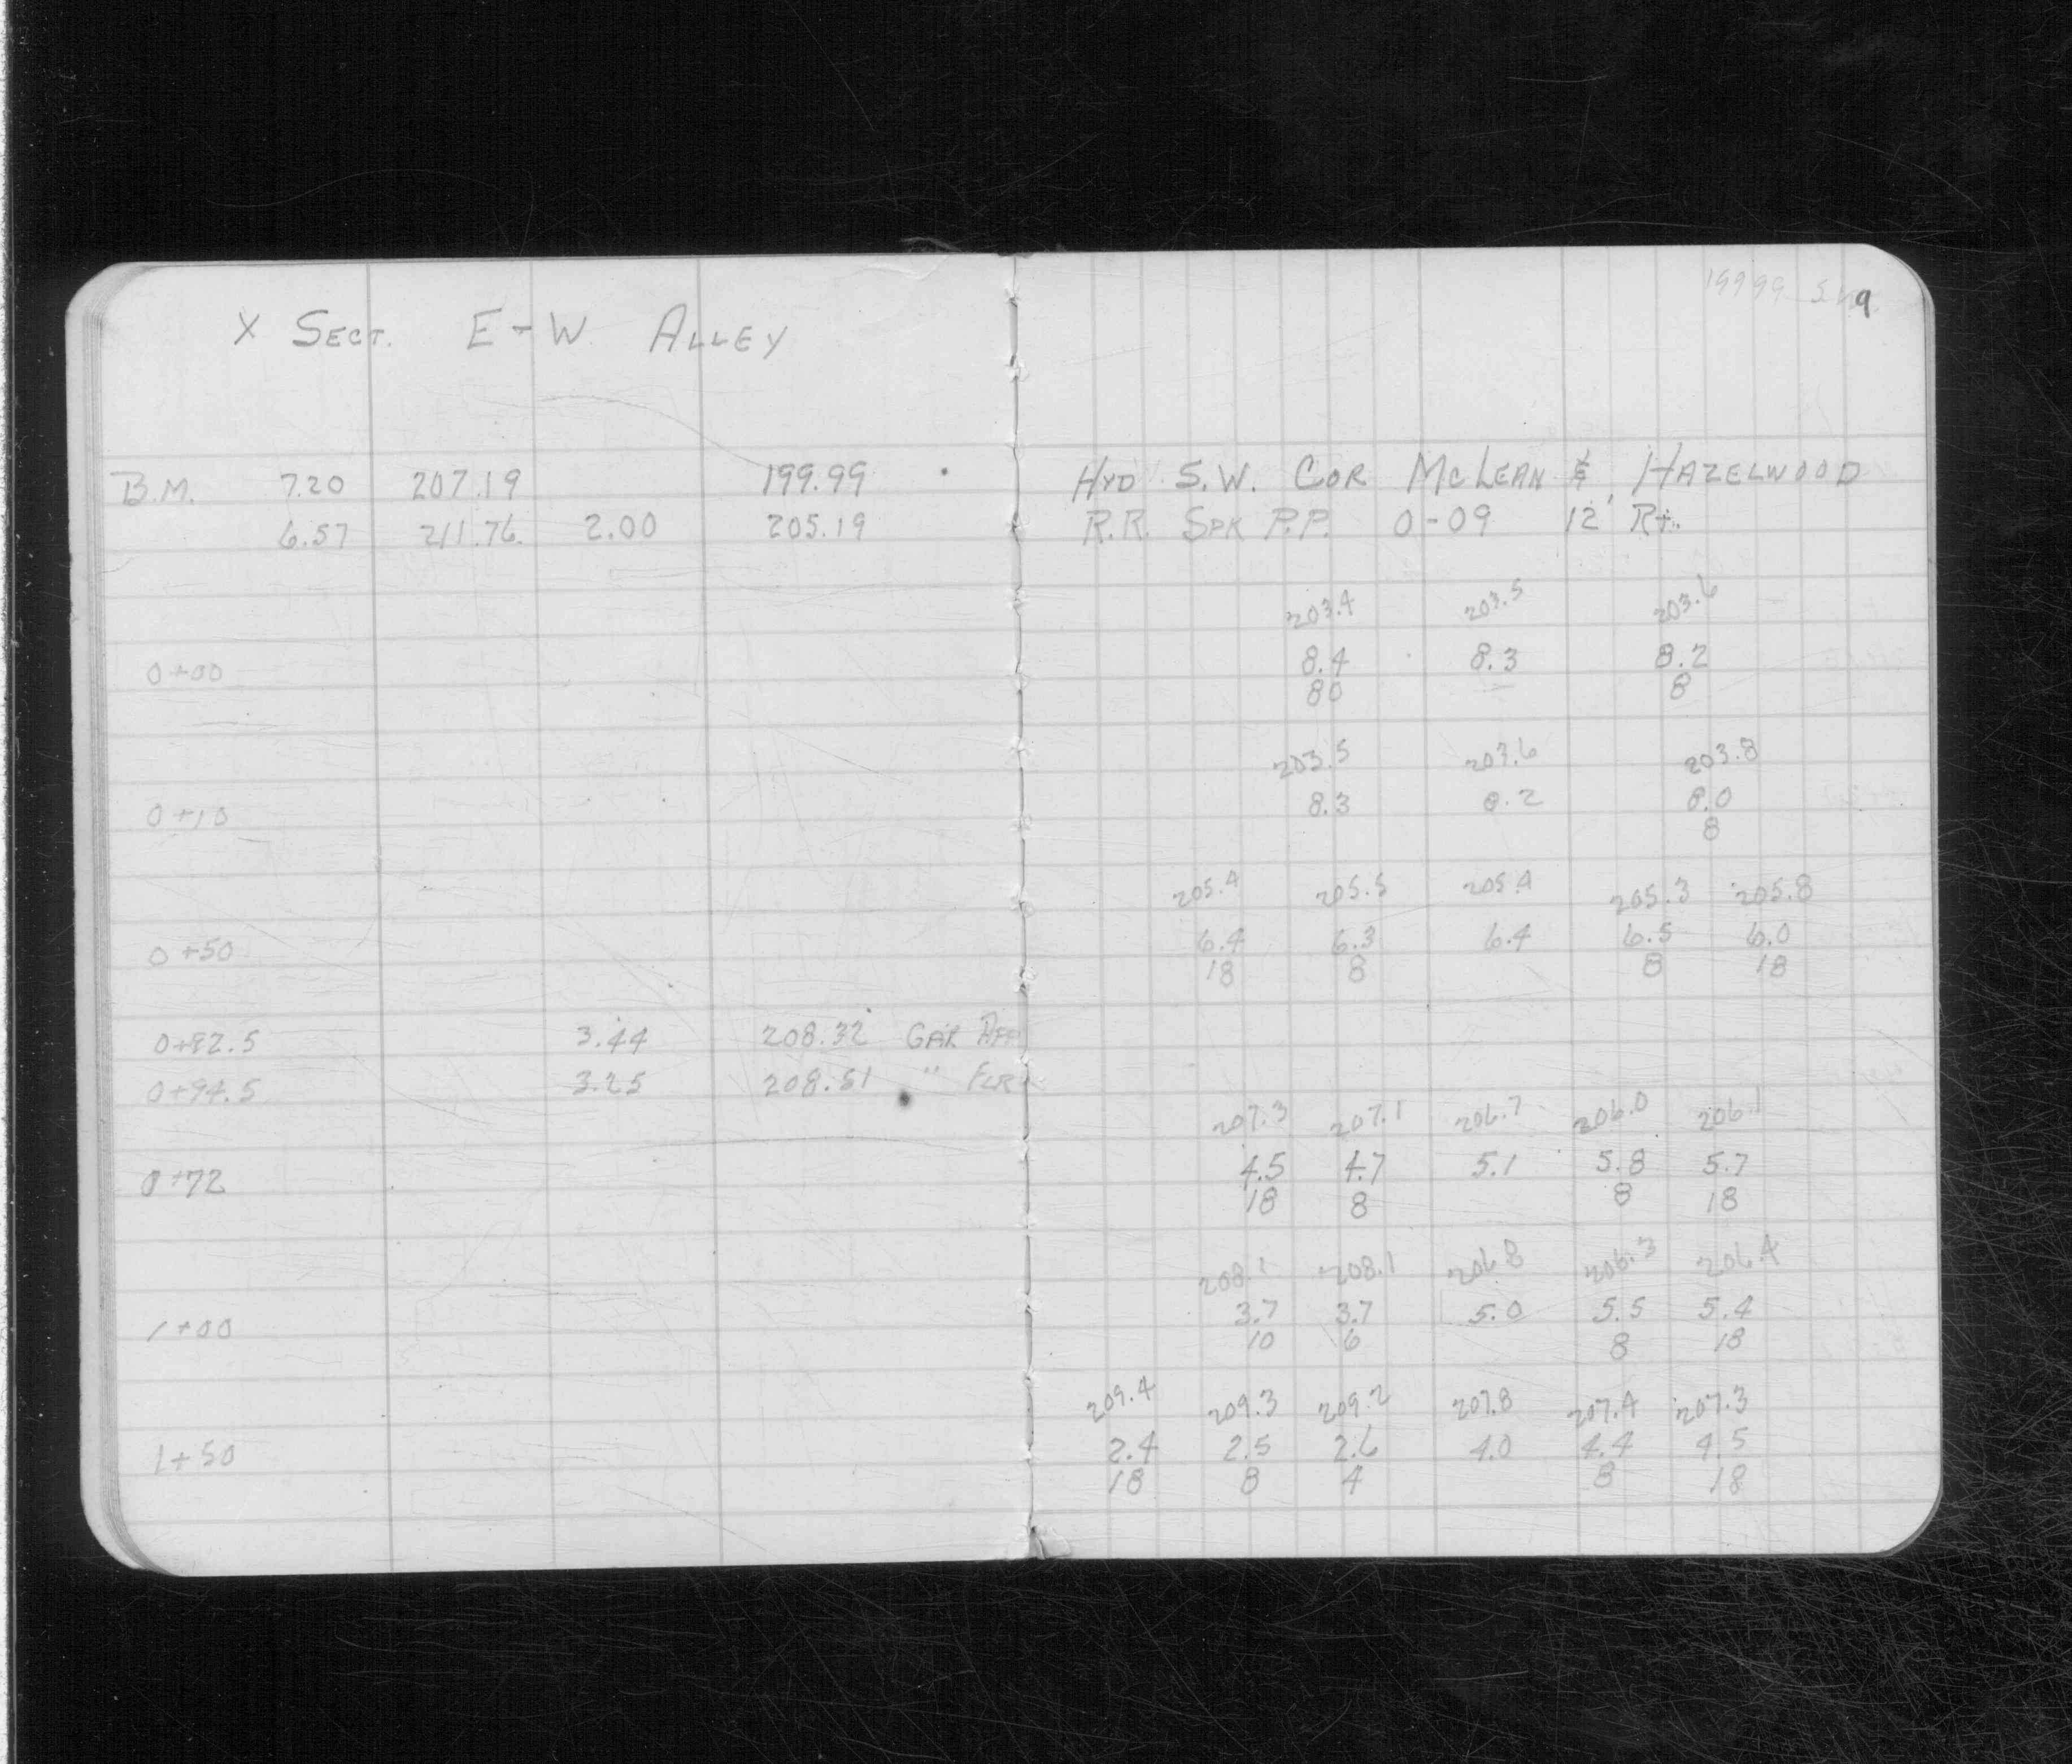 X SECT. E-W ALLEY
19999
9
B.M. 7.20 207.19 199.99 HYD S.W. COR MCLEAN & HAZELWOOD
6.57 211.76 2.00 205.19 R.R. SPK P.P. 0-09 12' Rt.
203.4 203.5 203.6
0+00 8.4 8.3 8.2
80 8
203.5 203.6 203.8
0+10 8.3 8.2 8.0
8
205.4 205.5 205.4 205.3 205.8
0+50 6.4 6.3 6.4 6.5 6.0
18 8 8 18
0+82.5 3.44 208.32 GAR
0+94.5 3.25 208.51 " FLR
207.3 207.1 206.7 206.0 206.1
0+72 4.5 4.7 5.1 5.8 5.7
18 8 8 18
208.1 208.1 206.8 206.3 206.4
1+00 3.7 3.7 5.0 5.5 5.4
10 6 8 18
209.4 209.3 209.2 207.8 207.4 207.3
1+50 2.4 2.5 2.6 4.0 4.4 4.5
18 8 4 8 18